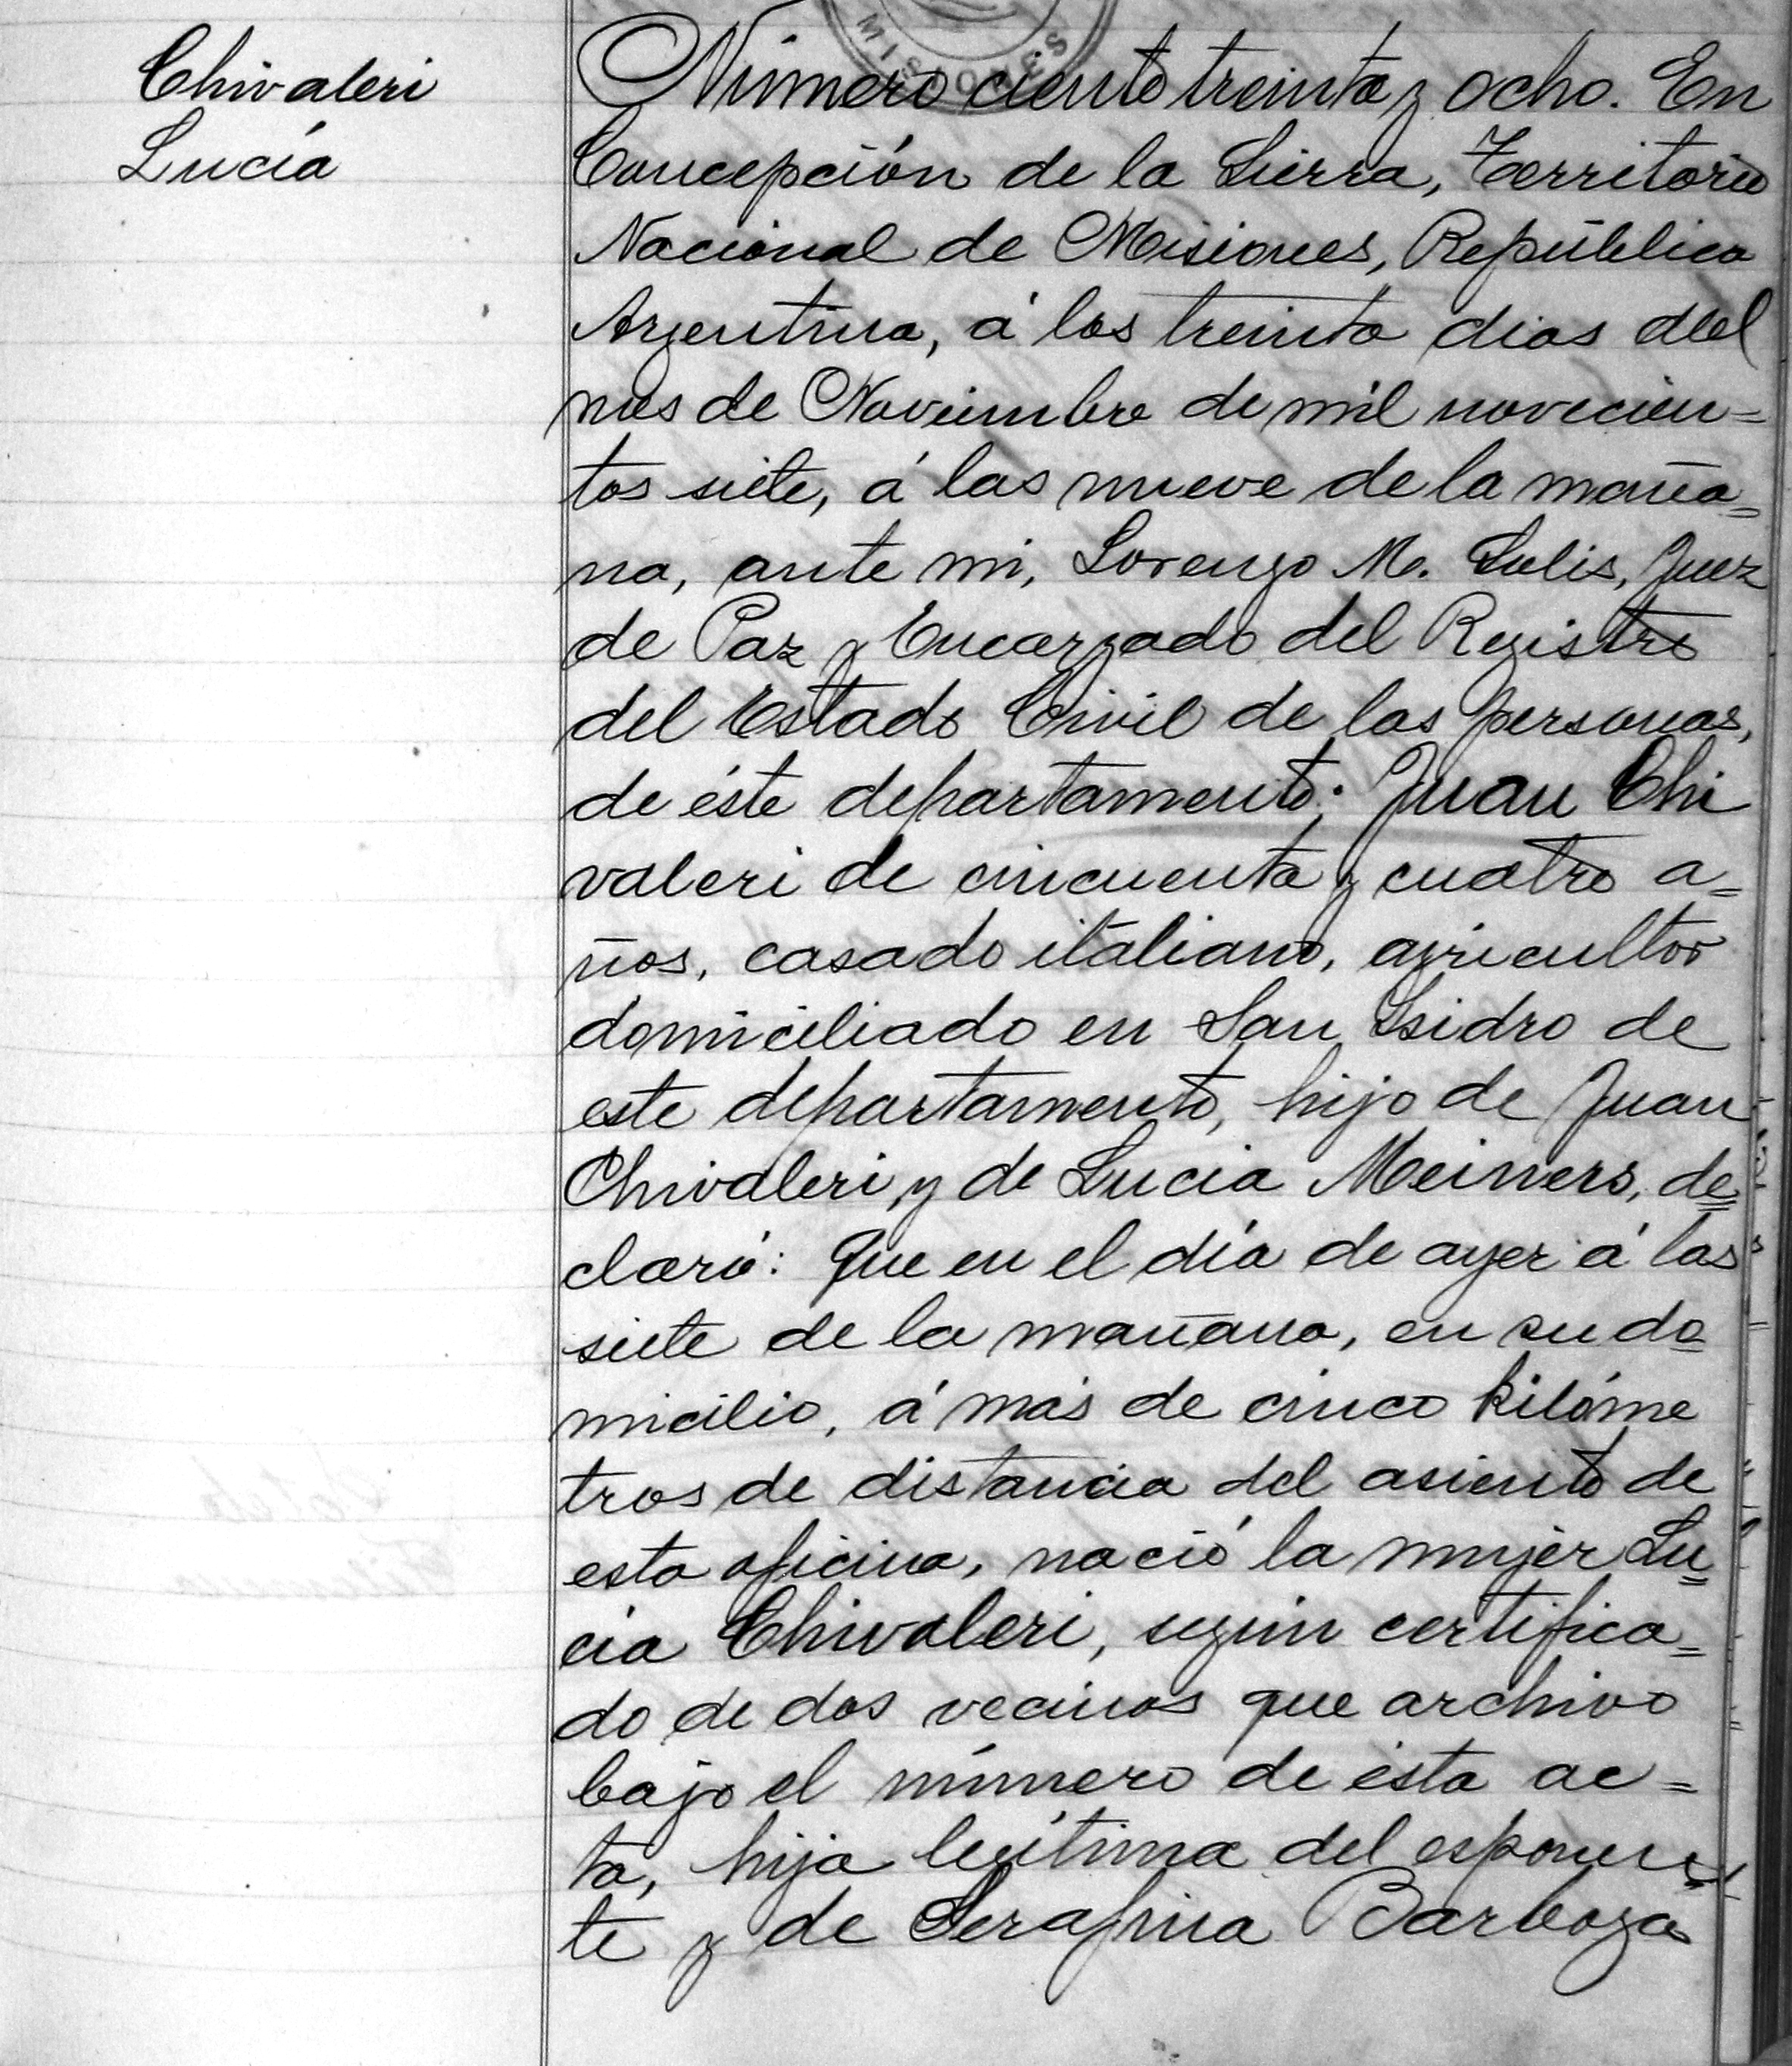 Chivaleri
Lucía
MISIONES
Número ciento treinta y ocho. En
Concepción de la Sierra, Territorio
Nacional de Misiones, República
Argentina, á los treinta dias del
mes de Noviembre de mil novecien=
tos siete, á las nueve de la maña=
na, ante mi, Lorenzo M. Solis, Juez
de Paz y Encargado del Registro
del Estado Civil de las personas,
de éste departamento; Juan Chi
valeri de cincuenta y cuatro a=
ños, casado italiano, agricultor
domiciliado en San Isidro de
este departamento, hijo de Juan
Chivaleri y de Lucia Meiners, de=
claró: Que en el día de ayer á las
siete de la mañana, en su do=
micilio, á más de cinco kilóme
tros de distancia del asiento de
esta oficina, nació la mujer Lu=
cia Chivaleri, según certifica=
do de dos vecinos que archivo
bajo el número de ésta ac=
ta, hija legítima del esponen=
te y de Serafina Barboza